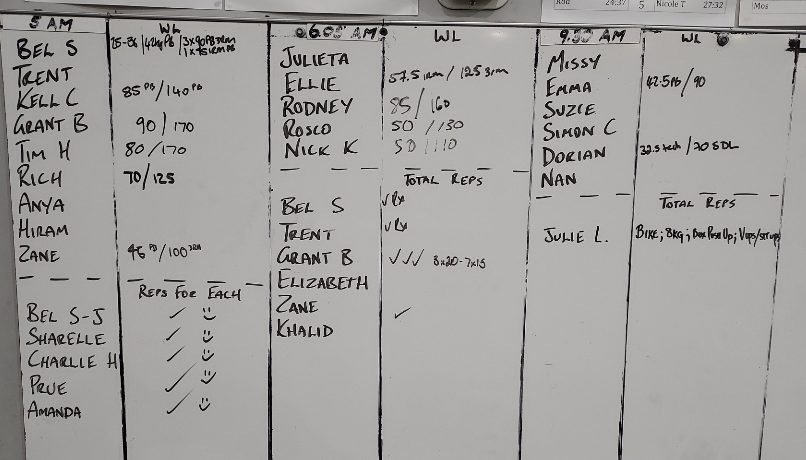 24:37 5 Nicole T 27:32 Mos
5 AM WL
BEL S
TRENT
KELL C 85 PB/140 PB
GRANT B 90/170
TIM H 80/170
RICH 70/125
ANYA
HIRAM
ZANE 46 PB/100 3RM
REPS FOR EACH
BEL S-J ✓ :)
SHARELLE ✓ :)
CHARLIE H ✓ :)
PRUE ✓ :)
AMANDA ✓ :)
6.05 AM WL
JULIETA
ELLIE 57.5 1RM/125 3RM
RODNEY 85/160
ROSCO 50/130
NICK K 50/110
TOTAL REPS
BEL S ✓ Rx
TRENT ✓ Rx
GRANT B ✓✓✓ 8x20-7x15
ELIZABETH
ZANE ✓
KHALID
9.30 AM WL
MISSY
EMMA 42.5PB/90
SUZIE
SIMON C
DORIAN 32.5 tech/70 SDL
NAN
TOTAL REPS
JULIE L. BIKE; 8KG; Box Push Up; V ups/sit ups